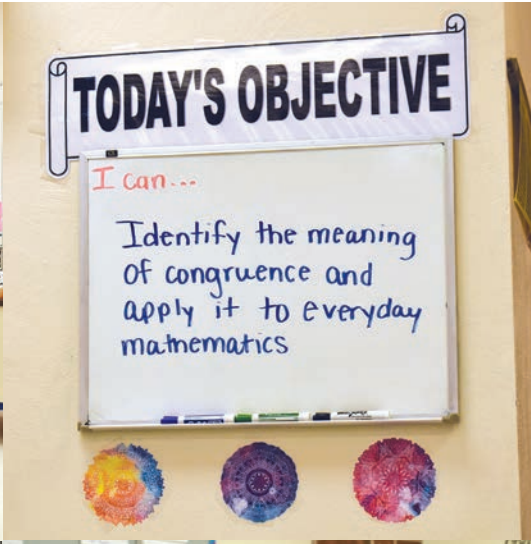 TODAY'S OBJECTIVE
I can...
Identify the meaning
of congruence and
apply it to everyday
mathematics